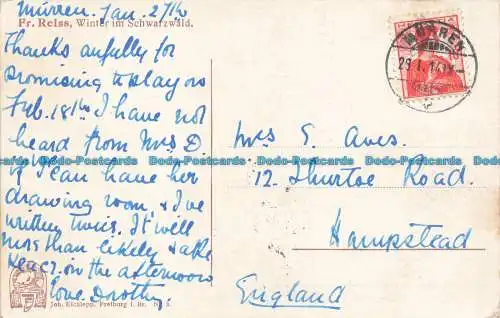 Mürren. Jan. 27th
Fr. Reiss, Winter im Schwarzwald.
Thanks awfully for
promising to play on
Feb. 18th I have not
heard from Mrs D.
if I can have her
drawing room, & I've
written twice. It will
more than likely take
place in the afternoon
Love. Dorothy.
Joh. Elchlepp, Freiburg i. Br. No
MÜRREN
29.I.14
Mrs S. Aves.
12. Road.
Hampstead
England
Dodo-Postcards Dodo-Postcards Dodo-Postcards